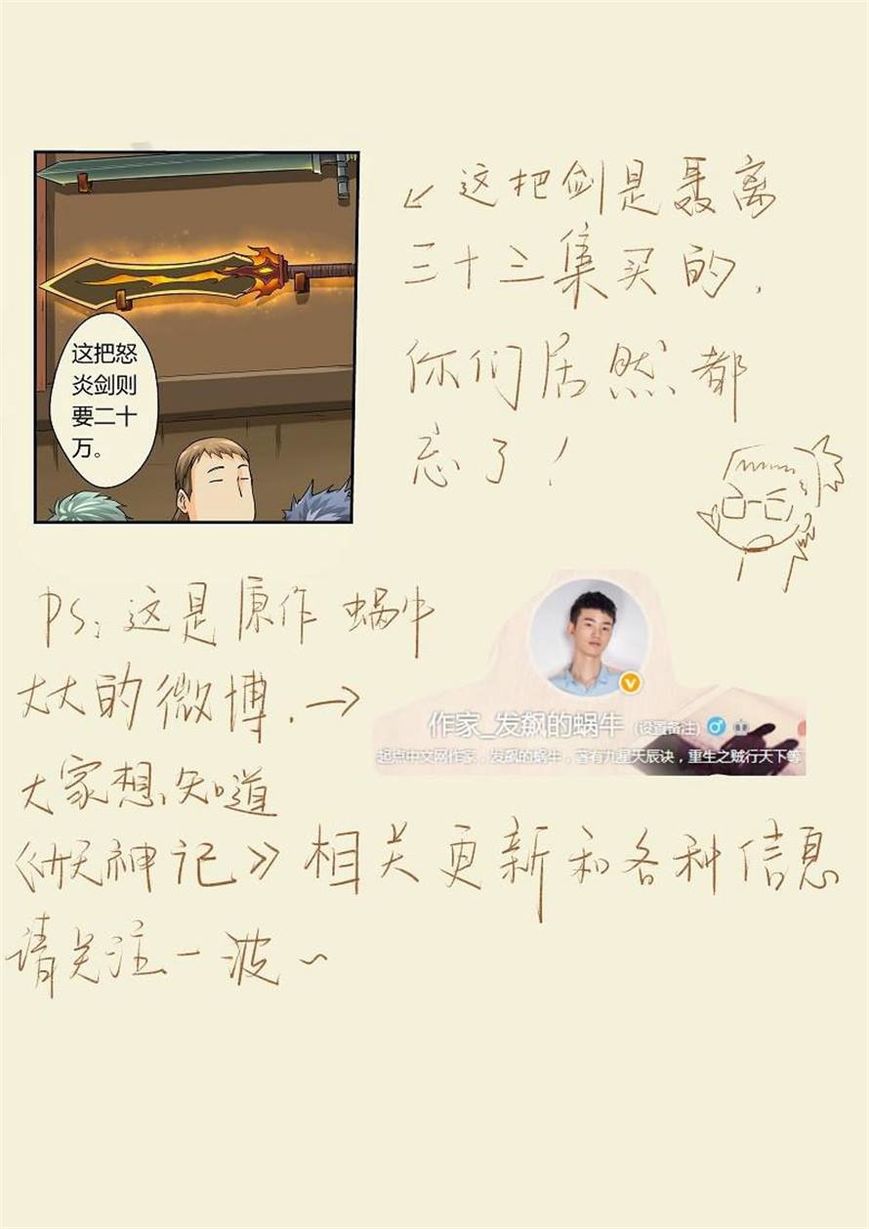 这把剑是聂离
三十三集买的,
你们居然都
忘了!
这把怒
炎剑则
要二十
万。
PS:这是原作 蜗牛
大大的微博.→
作家_发飙的蜗牛 (设置备注)
起点中文网作家,发飙的蜗牛,著有九星天辰诀,重生之贼行天下等
大家想知道
《妖神记》相关更新和各种信息
请关注一波~